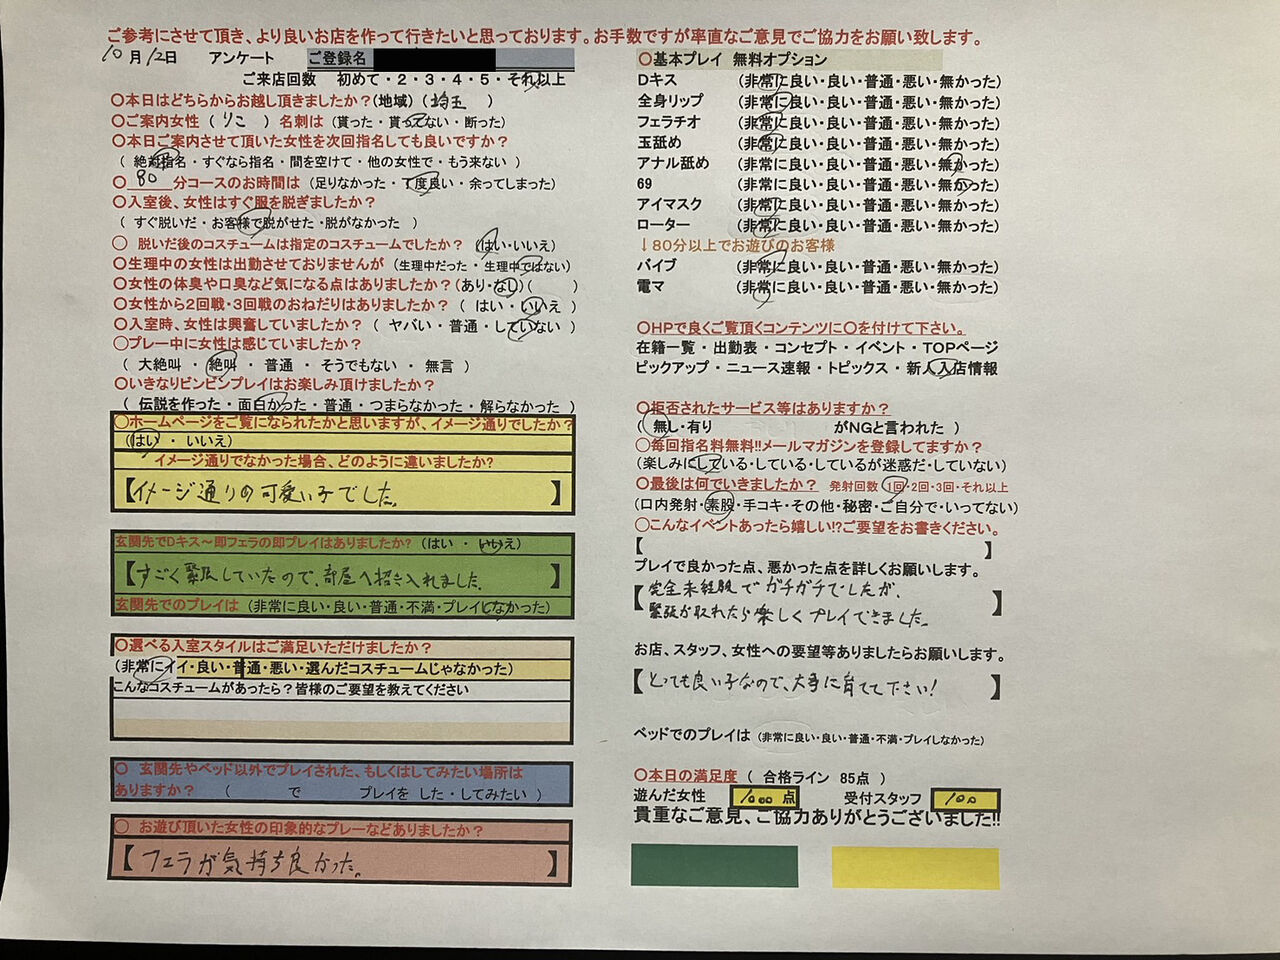 ご参考にさせて頂き、より良いお店を作って行きたいと思っております。お手数ですが率直なご意見でご協力をお願い致します。
10月12日 アンケート ご登録名
ご来店回数 初めて・2・3・4・5・それ以上
〇本日はどちらからお越し頂きましたか?(地域) (埼玉)
〇ご案内女性 (りこ) 名刺は (貰った・貰ってない・断った)
〇本日ご案内させて頂いた女性を次回指名しても良いですか?
(絶対指名・すぐなら指名・間を空けて・他の女性で・もう来ない)
〇 80 分コースのお時間は (足りなかった・丁度良い・余ってしまった)
〇入室後、女性はすぐ服を脱ぎましたか?
(すぐ脱いだ・お客様で脱がせた・脱がなかった)
〇 脱いだ後のコスチュームは指定のコスチュームでしたか? (はい・いいえ)
〇生理中の女性は出勤させておりませんが (生理中だった・生理中ではない)
〇女性の体臭や口臭など気になる点はありましたか?(あり・なし)( )
〇女性から2回戦・3回戦のおねだりはありましたか? (はい・いいえ)
〇入室時、女性は興奮していましたか? (ヤバい・普通・していない)
〇プレー中に女性は感じていましたか?
(大絶叫・絶叫・普通・そうでもない・無言)
〇いきなりビンビンプレイはお楽しみ頂けましたか?
(伝説を作った・面白かった・普通・つまらなかった・解らなかった)
〇ホームページをご覧になられたかと思いますが、イメージ通りでしたか?
(はい・いいえ)
イメージ通りでなかった場合、どのように違いましたか?
【イメージ通りの可愛い子でした。】
玄関先でDキス～即フェラの即プレイはありましたか? (はい・いいえ)
【すごく緊張していたので、部屋へ招き入れました。】
玄関先でのプレイは (非常に良い・良い・普通・不満・プレイしなかった)
〇選べる入室スタイルはご満足いただけましたか?
(非常にイイ・良い・普通・悪い・選んだコスチュームじゃなかった)
こんなコスチュームがあったら?皆様のご要望を教えてください
〇 玄関先やベッド以外でプレイされた、もしくはしてみたい場所は
ありますか? ( で プレイを した・してみたい )
〇 お遊び頂いた女性の印象的なプレーなどありましたか?
【フェラが気持ち良かった。】
〇基本プレイ 無料オプション
Dキス (非常に良い・良い・普通・悪い・無かった)
全身リップ (非常に良い・良い・普通・悪い・無かった)
フェラチオ (非常に良い・良い・普通・悪い・無かった)
玉舐め (非常に良い・良い・普通・悪い・無かった)
アナル舐め (非常に良い・良い・普通・悪い・無かった)
69 (非常に良い・良い・普通・悪い・無かった)
アイマスク (非常に良い・良い・普通・悪い・無かった)
ローター (非常に良い・良い・普通・悪い・無かった)
↓80分以上でお遊びのお客様
バイブ (非常に良い・良い・普通・悪い・無かった)
電マ (非常に良い・良い・普通・悪い・無かった)
〇HPで良くご覧頂くコンテンツに〇を付けて下さい。
在籍一覧・出勤表・コンセプト・イベント・TOPページ
ピックアップ・ニュース速報・トピックス・新人入店情報
〇拒否されたサービス等はありますか?
(無し・有り がNGと言われた )
〇毎回指名料無料!!メールマガジンを登録してますか?
(楽しみにしている・している・しているが迷惑だ・していない)
〇最後は何でいきましたか? 発射回数 1回・2回・3回・それ以上
(口内発射・素股・手コキ・その他・秘密・ご自分で・いってない)
〇こんなイベントあったら嬉しい!?ご要望をお書きください。
【 】
プレイで良かった点、悪かった点を詳しくお願いします。
【完全未経験でガチガチでしたが、
緊張が取れたら楽しくプレイできました。】
お店、スタッフ、女性への要望等ありましたらお願いします。
【とっても良い子なので、大事に育てて下さい!】
ベッドでのプレイは (非常に良い・良い・普通・不満・プレイしなかった)
〇本日の満足度 ( 合格ライン 85点 )
遊んだ女性 1000 点 受付スタッフ 100
貴重なご意見、ご協力ありがとうございました!!